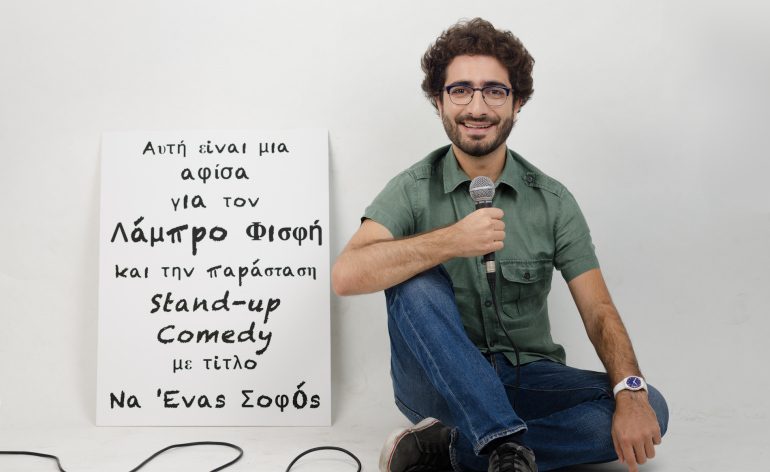 Αυτή είναι μια
αφίσα
για τον
Λάμπρο Φισφή
και την παράσταση
Stand-up
Comedy
με τίτλο
Να Ένας ΣοφΌς